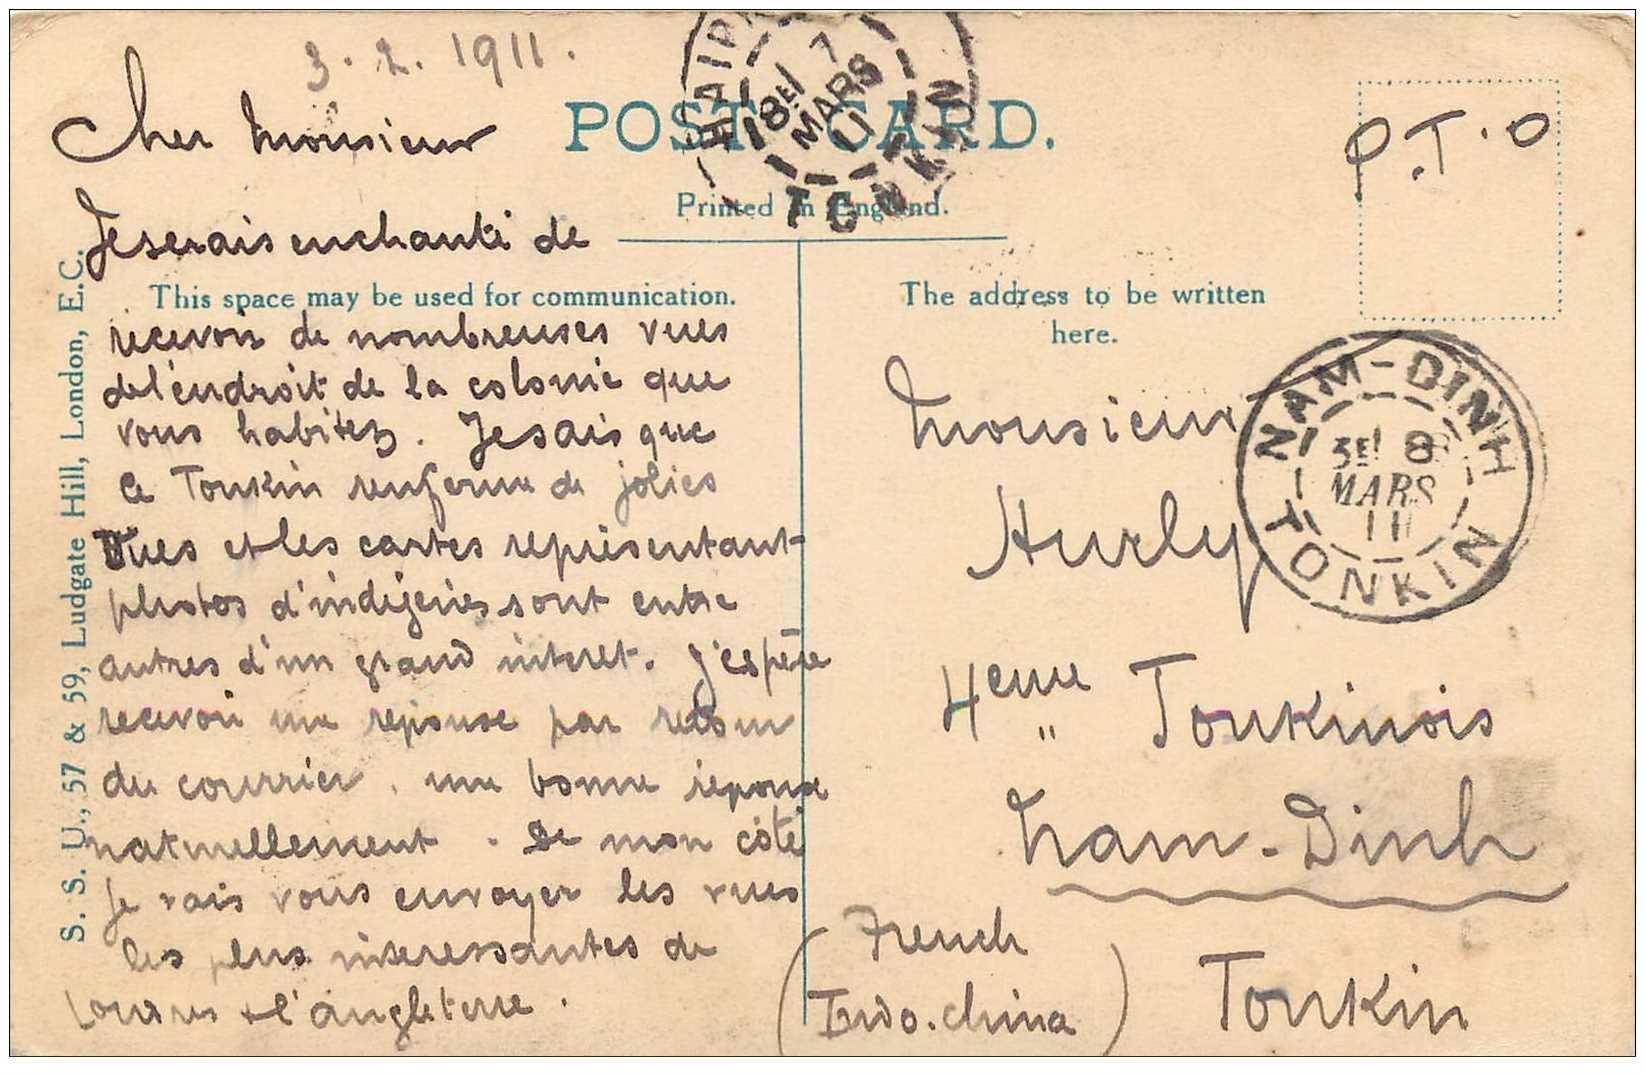 3.2.1911.
Cher Monsieur
Je serais enchanté de
recevoir de nombreuses vues
de l'endroit de la colonie que
vous habitez. Je sais que
le Tonkin renferme de jolies
Vues et les cartes représentant
photos d'indigènes sont entre
autres d'un grand interet. J'espère
recevoir une reponse par retour
du courrier, une bonne reponse
naturellement. De mon côté
Je vais vous envoyer les vues
les plus interessantes de
Londres et l'angleterre.
POST CARD.
Printed in England.
This space may be used for communication.
The address to be written
here.
S. S. U., 57 & 59, Ludgate Hill, London, E.C.
HAIPHONG
18E/ 7
MARS
11
TONKIN
P.T.O
NAM-DINH
3E/ 8
MARS
11
TONKIN
Monsieur
Hurly
4eme Tonkinois
Nam-Dinh
(French
Indo.china)
Tonkin